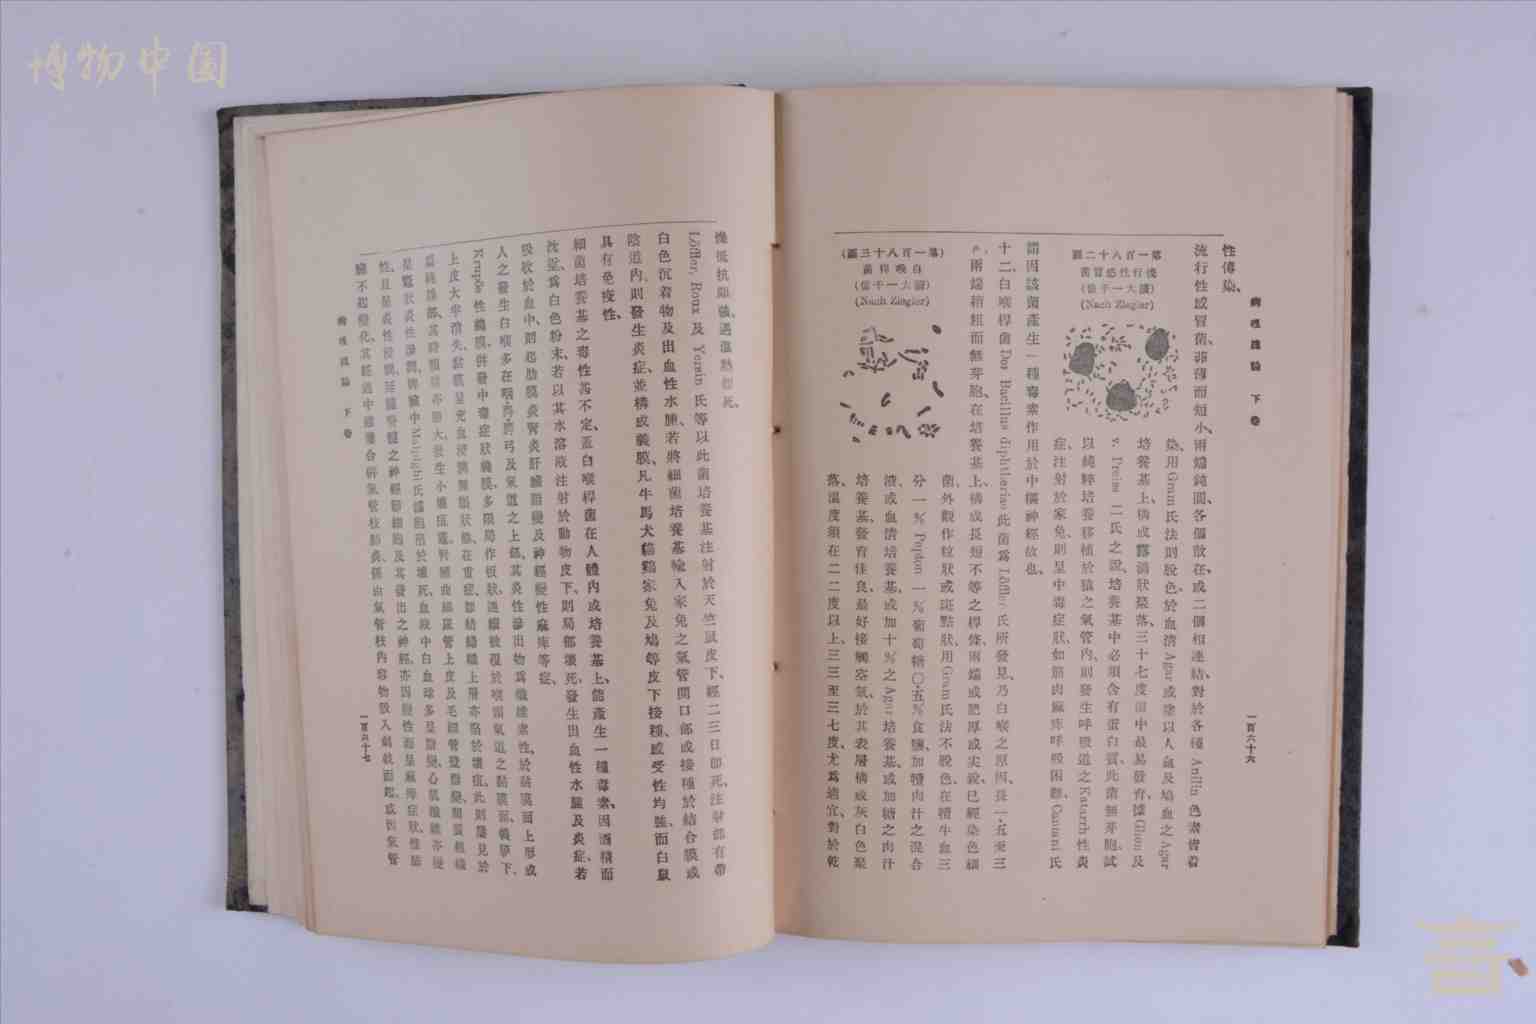 博物中国
病理總論 下卷
一百六十六
性傳染、
流行性感冒菌、菲薄而短小、兩端鈍圓、各個散在、或二個相連結、對於各種 Anilin 色素皆着
染、用 Gram 氏法則脫色、於血清 Agar 或塗以人血及鳩血之 Agar
培養基上、構成露滴狀聚落、三十七度前中最易發育、據 Ghon 及
v. Preiss 二氏之說、培養基中必須含有蛋白質、此菌無芽胞、試
以純粹培養移植於猿之氣管內、則發生呼吸道之 Katarrh 性炎
症、注射於家兔、則呈中毒症狀、如筋肉麻痺呼吸困難、Cantani 氏
謂因該菌產生一種毒素、作用於中樞神經故也、
第一百八十二圖
流行性感冒菌
(廓大一千倍)
(Nach Ziegler)
十二、白喉桿菌 Der Bacillus diphtheriae 此菌爲 Löffler 氏所發見、乃白喉之原因、長一·五至三
μ、兩端稍粗而無芽胞、在培養基上、構成長短不等之桿條、兩端或肥厚或尖銳、已經染色細
菌、外觀作粒狀或斑點狀、用 Gram 氏法不脫色、在犢牛血三
分一%Pepton 一%葡萄糖〇·五%食鹽、加犢肉汁之混合
液或血清培養基、或加十%之 Agar 培養基、或加糖之肉汁
培養基、發育佳良、最好接觸空氣、於其表層構成灰白色聚
落、溫度須在二二度以上、三三至三七度、尤爲適宜、對於乾
第一百八十三圖
白喉桿菌
(廓大一千倍)
(Nach Ziegler)
燥抵抗頗強、遇溫熱卽死、
Löffler, Roux 及 Yersin 氏等以此菌培養基注射於天竺鼠皮下、經二三日卽死、注射部有帶
白色沉着物及出血性水腫、若將細菌培養基輸入家兔之氣管開口部或接種於結合膜或
陰道內、則發生炎症、並構成義膜、凡牛馬犬貓鷄家兔及鳩等皮下接種、感受性均強、而白鼠
具有免疫性、
細菌培養基之毒性甚不定、蓋白喉桿菌在人體內或培養基上、能產生一種毒素、因酒精而
沈澱、爲白色粉末、若以其水溶液注射於動物皮下、則局部壞死、發生出血性水腫及炎症、若
吸收於血中、則起肋膜炎腎炎肝臟脂變及神經變性麻痺等症、
人之發生白喉、多在咽弓及氣道之上部、其炎性滲出物爲纖維素性、於黏膜面上形成
Krupos 性義膜、併發中毒症狀、義膜多限局作板狀、連續被覆於喉頭氣道之黏膜面、義膜下、
上皮大半消失、黏膜呈充血浸潤、無損狀態、在重症、結締織上層亦陷於壞疽、此則屢見於
扁桃腺部、其時頸腺亦腫大、發生小壞疽竈、腎臟曲細尿管上皮及毛細管壁脂變、間質組織
呈竈狀炎性浸潤、脾臟中 Malpighi 氏濾胞陷於壞死、血液中白血球多呈脂變、心肌纖維亦變
性、且呈炎性浸潤、延髓脊髓之神經節細胞及其發出之神經、亦因變性而呈麻痺症狀、惟腦
髓不起變化、其經過中屢屢合併氣管枝肺炎、係由氣管枝內容物吸入刺戟而起、或因氣管
病理總論 下卷
一百六十七